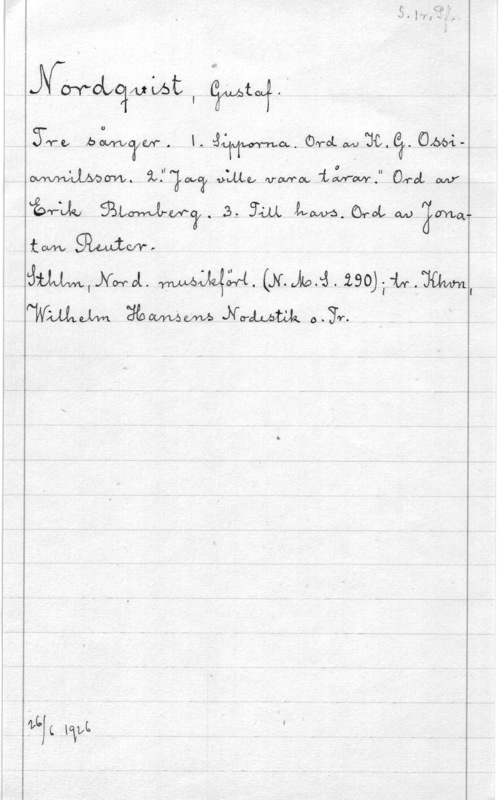 S. 1 r. Pfr.
Nordqvist, Gustaf.
Tre sånger. 1. Sipporna. Ord av K. G. Ossi-
annilsson. 2. "Jag ville vara tårar." Ord av
Erik Blomberg. 3. Till havs. Ord av Jona-
tan Reuter.
Sthlm, Nord. musikförl. (N. M. S. 290); tr. Khvn,
Wilhelm Hansens Nodestik o. Tr.
26/6 1926